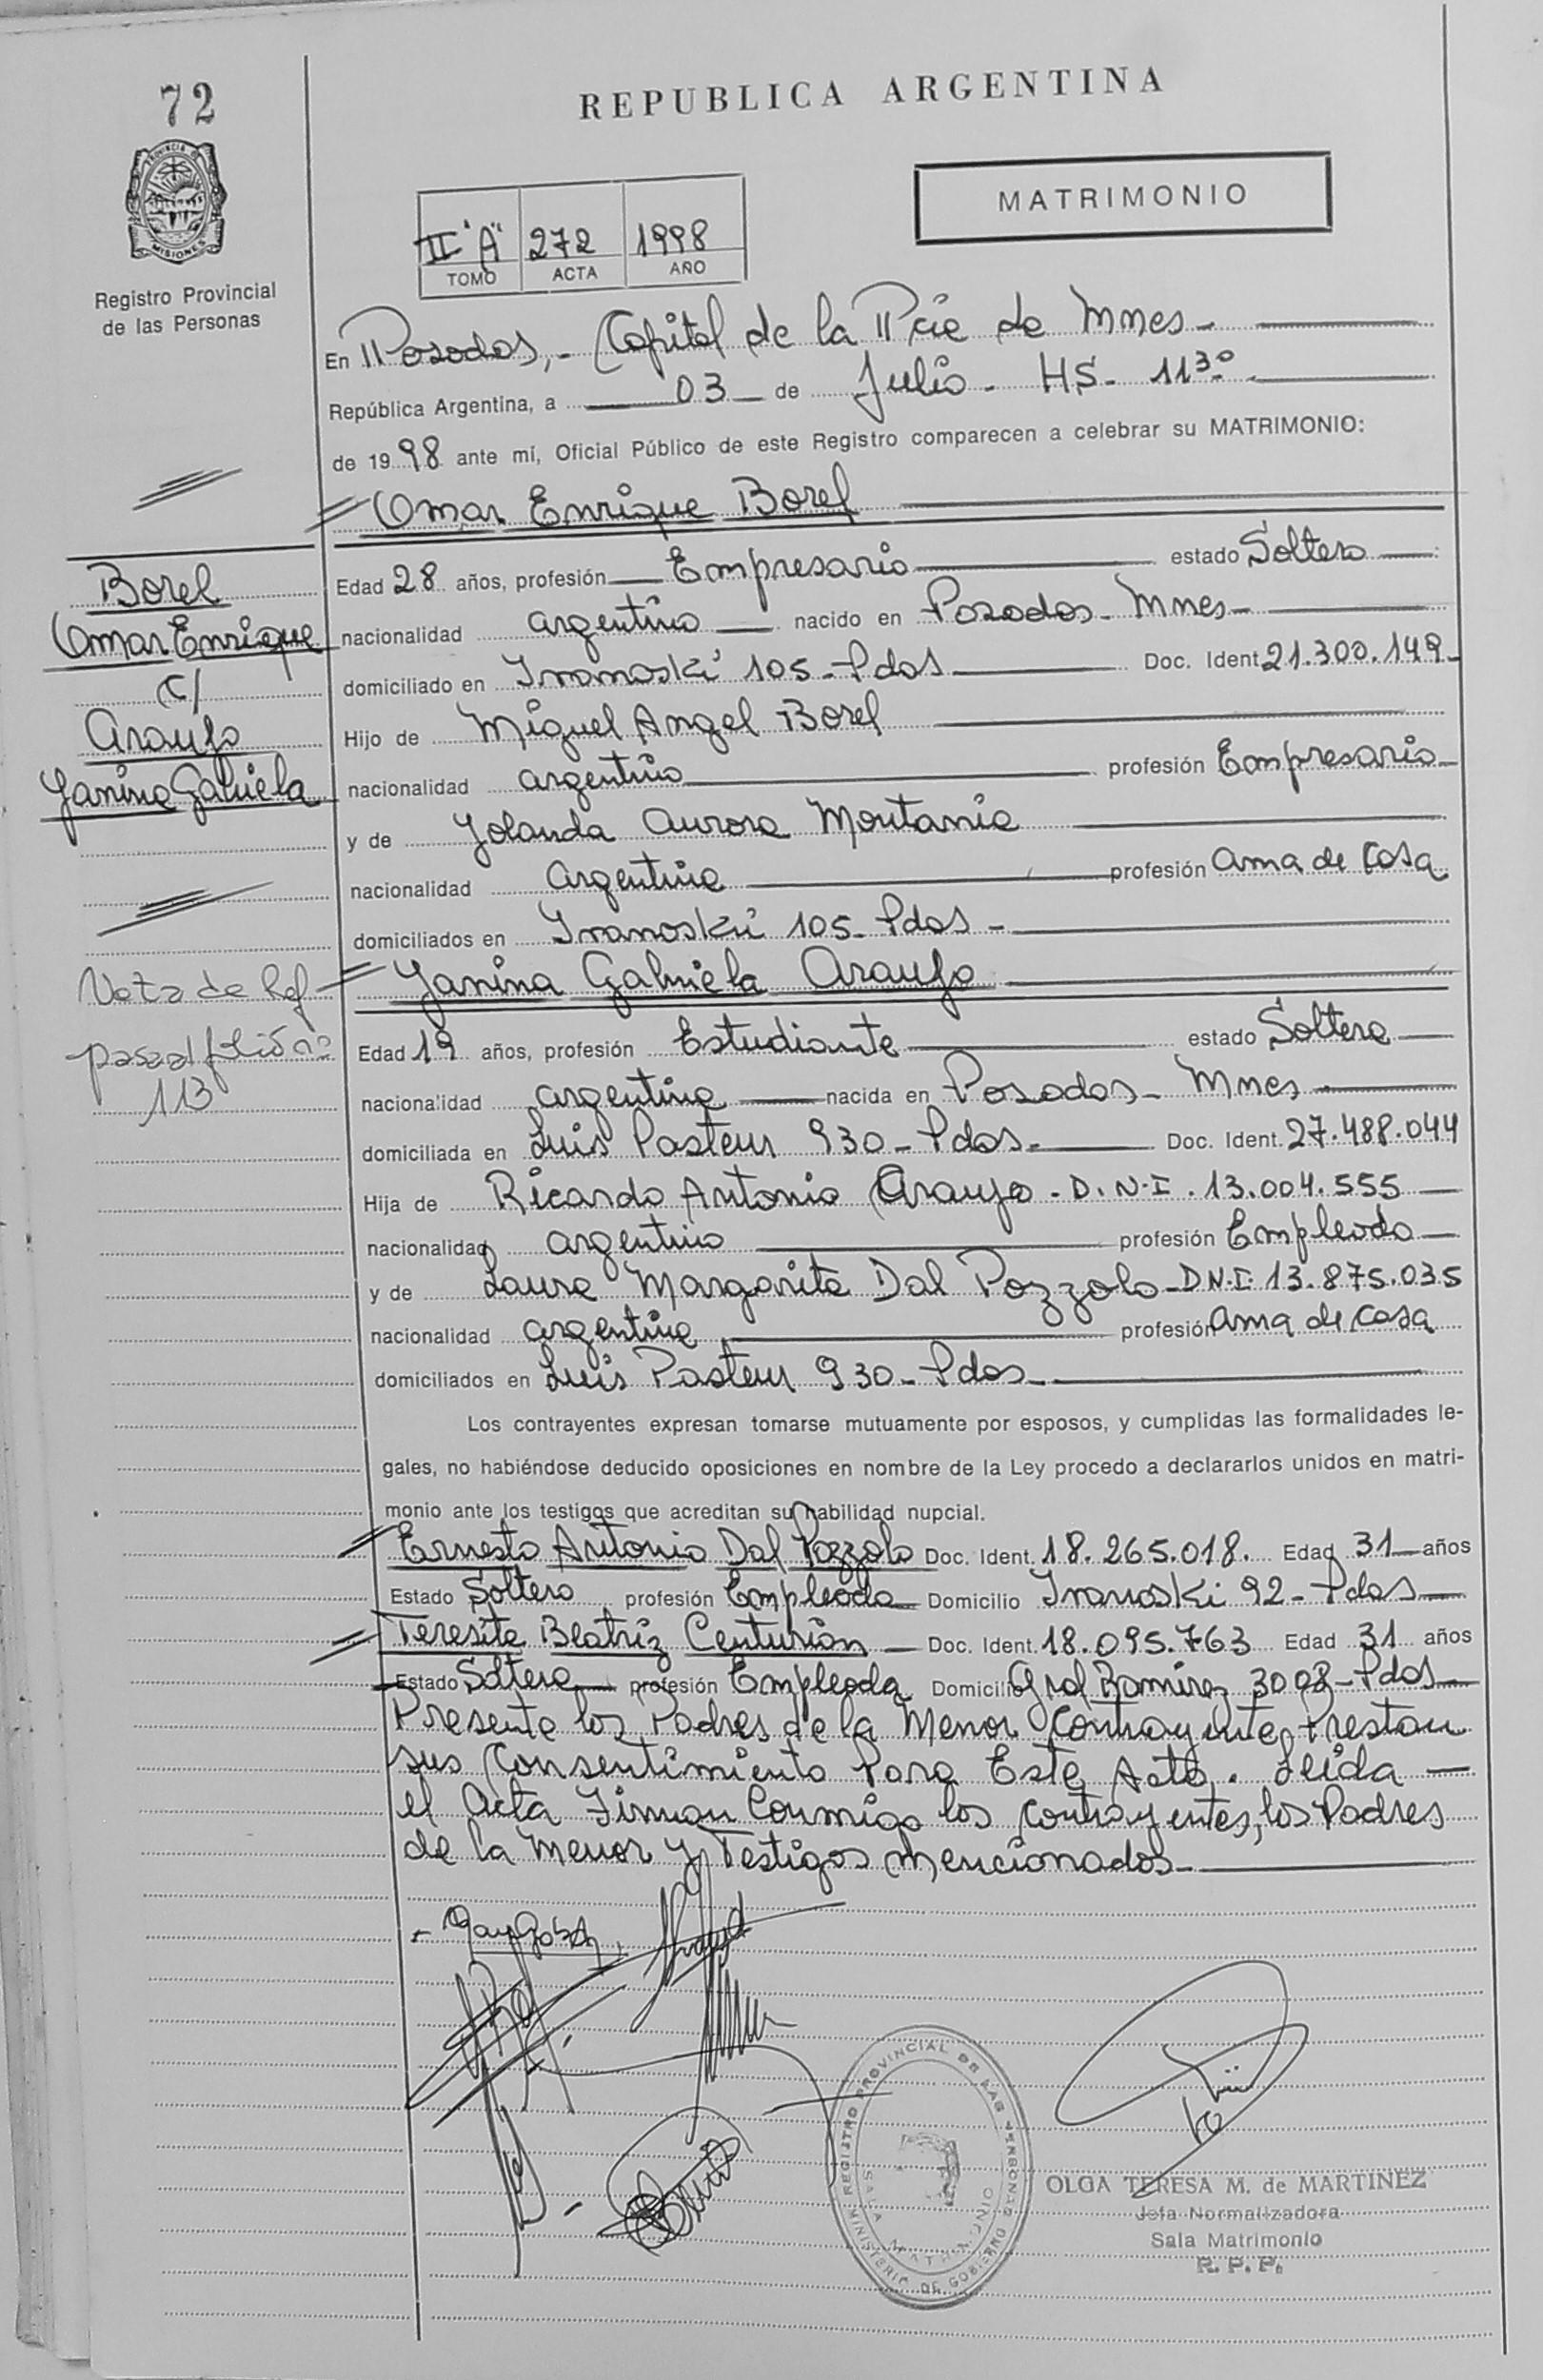 72
REPUBLICA ARGENTINA
PROVINCIA DE
MISIONES
Registro Provincial
de las Personas
MATRIMONIO
II "A" 272 1998
TOMO ACTA AÑO
En Posadas,- Capital de la Pcia de Mnes-
República Argentina, a 03 de Julio - HS- 11³⁰
de 1998 ante mí, Oficial Público de este Registro comparecen a celebrar su MATRIMONIO:
Omar Enrique Borel
Borel
Omar Enrique
c/
Araujo
Yanina Gabriela
Edad 28 años, profesión Empresario estado Soltero
nacionalidad argentino nacido en Posadas- Mnes-
domiciliado en Iwanoski 105- Pdas Doc. Ident 21.300.149
Hijo de Miguel Angel Borel
nacionalidad argentino profesión Empresario
y de Yolanda Aurora Montania
nacionalidad argentina profesión Ama de Casa
domiciliados en Iwanoski 105- Pdas-
Yanina Gabriela Araujo
Nota de Ref
pasa al folio nº
113
Edad 19 años, profesión Estudiante estado Soltera
nacionalidad argentina nacida en Posadas- Mnes
domiciliada en Luis Pasteur 930- Pdas- Doc. Ident. 27.488.044
Hija de Ricardo Antonio Araujo - D.N.I. 13.004.555
nacionalidad argentino profesión Empleado
y de Laura Margarita Dal Pozzolo- D.N.I. 13.875.035
nacionalidad argentina profesión Ama de Casa
domiciliados en Luis Pasteur 930- Pdas-
Los contrayentes expresan tomarse mutuamente por esposos, y cumplidas las formalidades le-
gales, no habiéndose deducido oposiciones en nombre de la Ley procedo a declararlos unidos en matri-
monio ante los testigos que acreditan su habilidad nupcial.
Ernesto Antonio Dal Pozzolo Doc. Ident. 18.265.018. Edad 31 años
Estado Soltero profesión Empleado Domicilio Iwanoski 92- Pdas
Teresita Beatriz Centurión Doc. Ident. 18.095.763 Edad 31 años
Estado Soltera profesión Empleada Domicilio Gral Ramirez 3008- Pdas
Presente los Padres de la Menor Contrayente, Prestan
sus Consentimiento Para Este Acto. Leida
el Acta Firman Conmigo los Contrayentes, los Padres
de la Menor y Testigos mencionados-
REGISTRO PROVINCIAL DE LAS PERSONAS
SALA MATRIMONIO
MINISTERIO DE GOBIERNO
OLGA TERESA M. de MARTINEZ
Jefa Normalizadora
Sala Matrimonio
R. P. P.